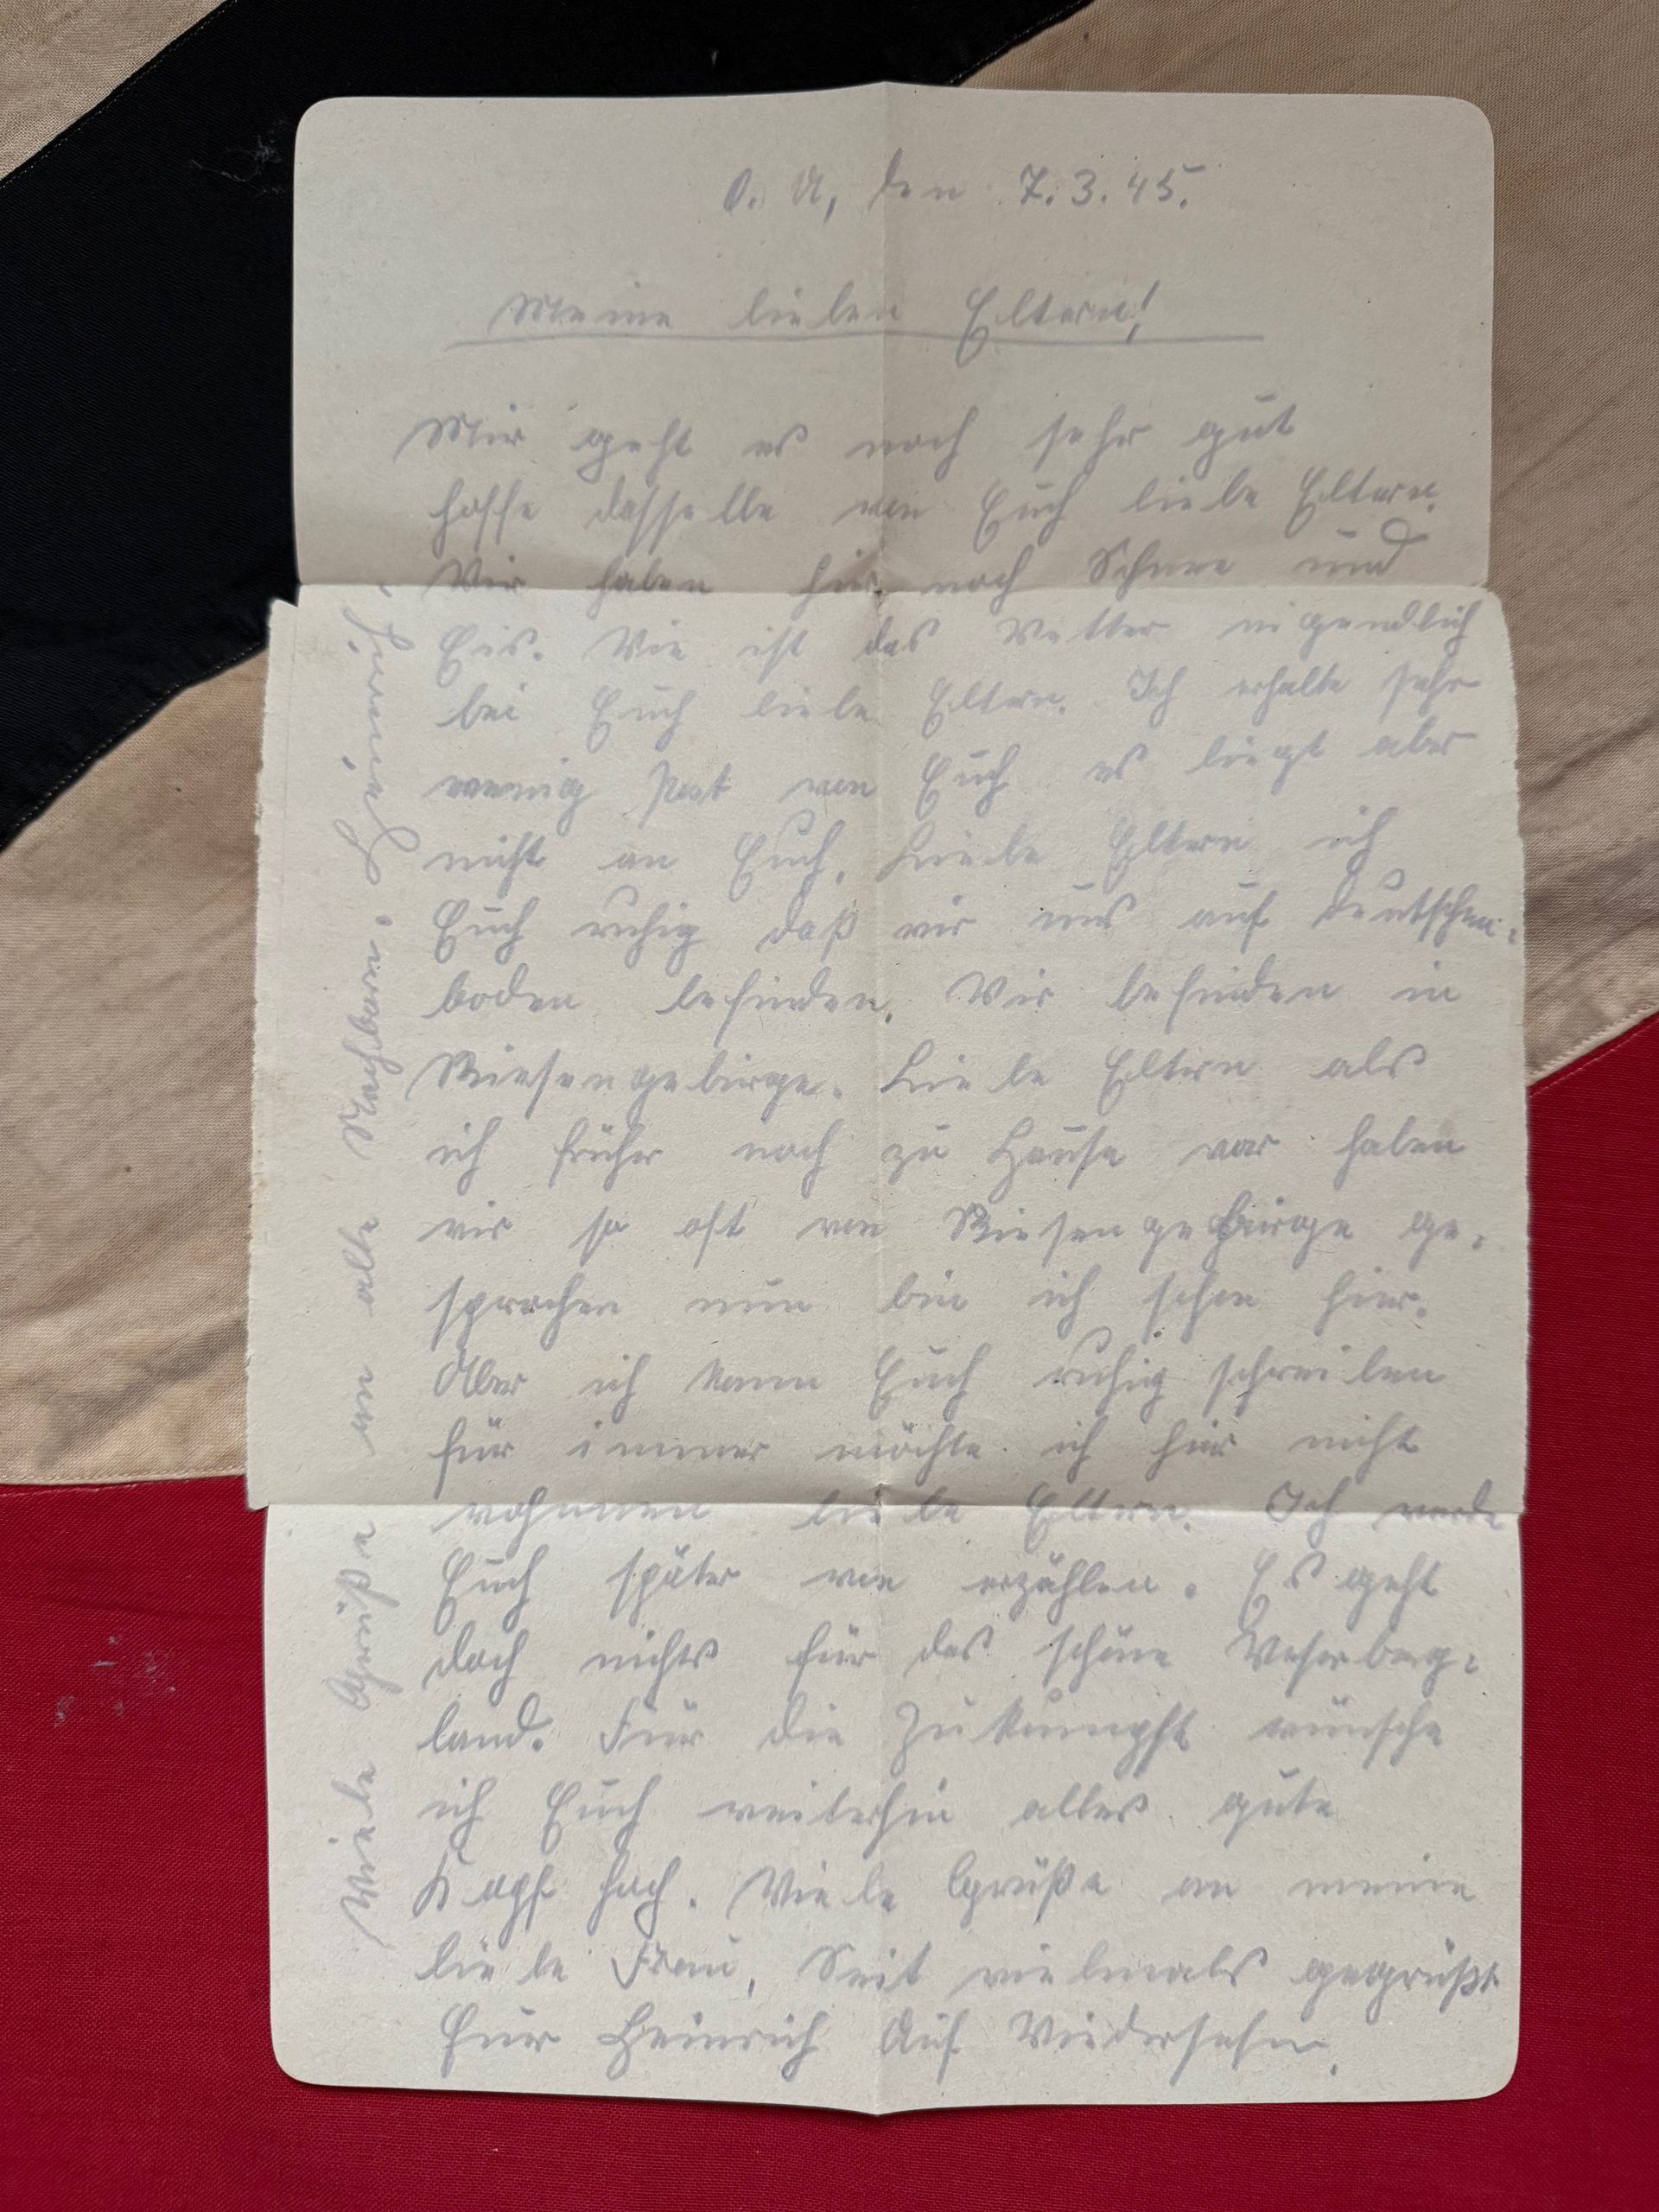 O. U, den 7.3.45.
Meine lieben Eltern!
Mir geht es noch sehr gut
hoffe dasselbe von Euch liebe Eltern.
Wir haben hir noch Schnee und
Eis. Wie ist das Wetter eigendlich
bei Euch liebe Eltern. Ich erhalte sehr
wenig Post von Euch es liegt aber
nicht an Euch. Liebe Eltern ich
Euch ruhig daß wir uns auf deutschen-
boden befinden. Wir befinden in
Riesengebirge. Liebe Eltern als
ich früher noch zu Hause war haben
wir so oft von Riesengebirge ge-
sprochen nun bin ich schon hier.
Aber ich kann Euch ruhig schreiben
für immer möchte ich hir nicht
wohnnen liebe Eltern. Ich werde
Euch später von erzählen. Es geht
doch nichts für das schöne Weserberg-
land. Für die Zukumpft wünsche
ich Euch weiterhin alles gute
Kopf hoch. Viele Grüße an meine
liebe Frau, Seit vielmals gegrüßt
Eur Heinrich Auf Wiedersehn.
Viele Grüße an alle Nachbarn. Heinrich